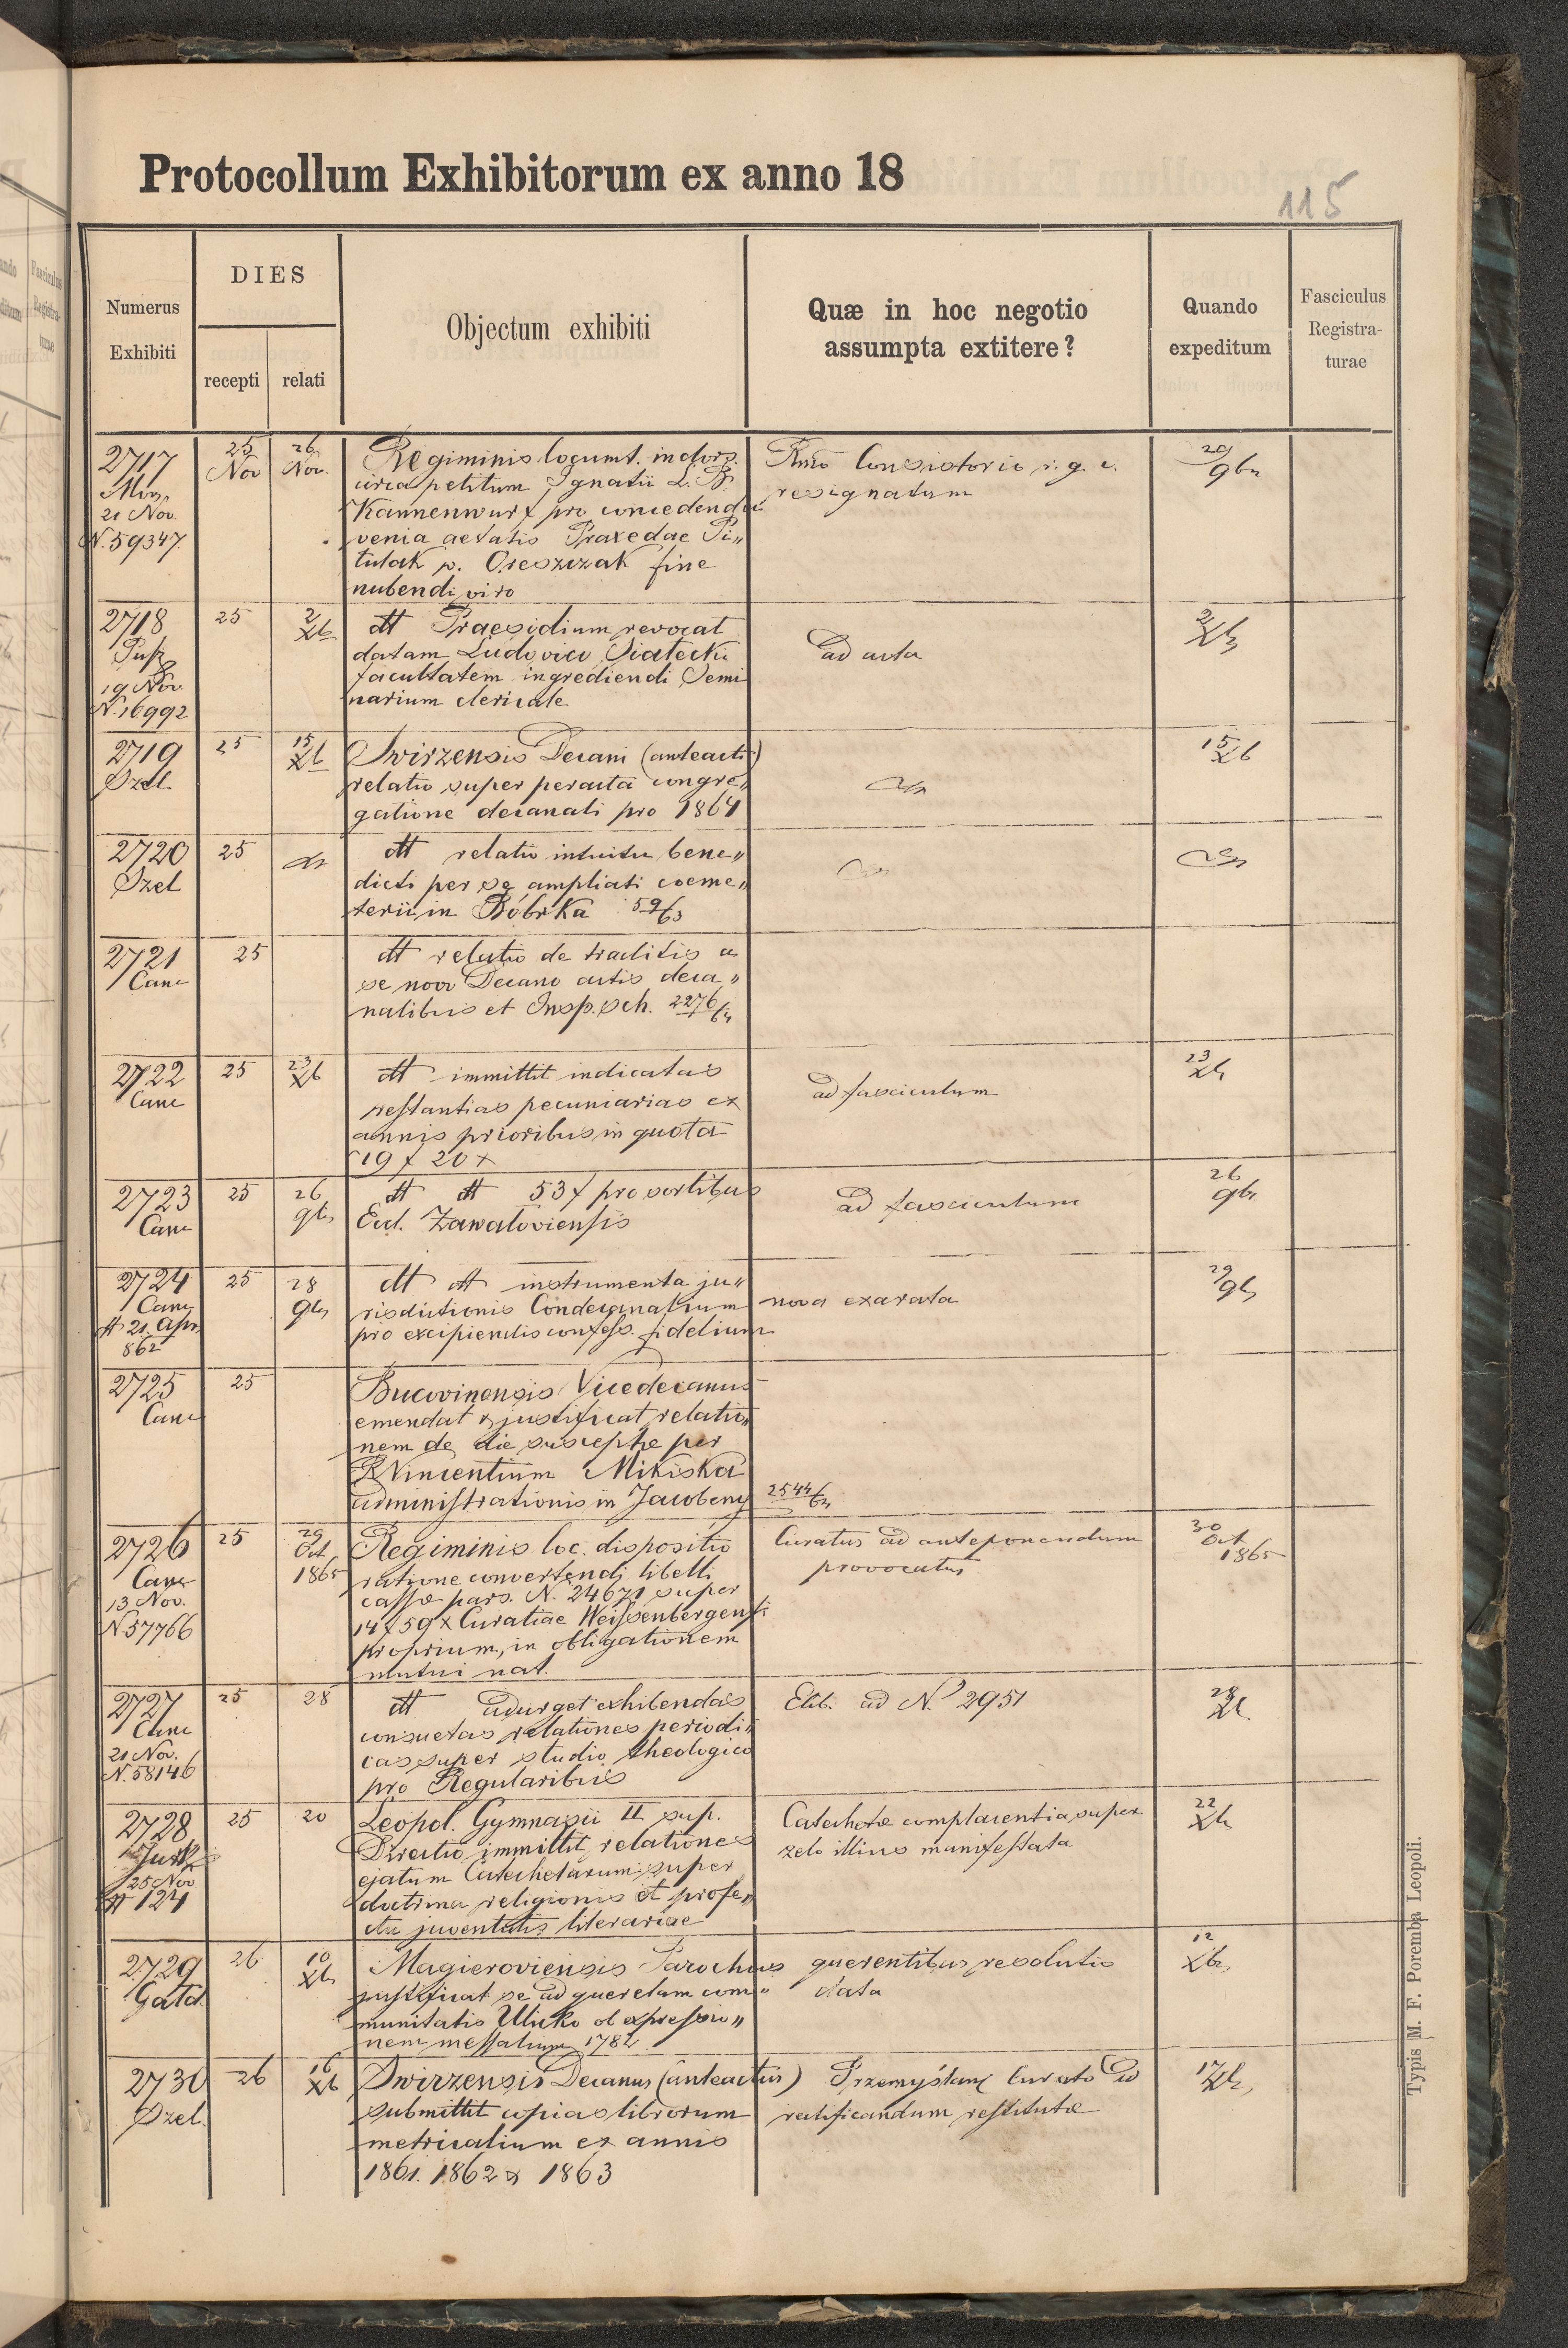 Protocollum Exhibitorum ex anno 18
115
Numerus Exhibiti
DIES
recepti
relati
Objectum exhibiti
Quæ in hoc negotio assumpta extitere?
Quando expeditum
Fasciculus Registra-turae
2717
21 Nov.
N. 59347.
25 Nov
26 Nov.
Regiminis locumt. indors.
circa petitum Ignatii L. B.
Kannenwurf pro concedenda
venia aetatis Praxedae Pi„
tulak p. Oreszczak fine
nubendi viro
Rmo Consistorio r. g. c.
resignatum
29 9br
2718
19 Nov.
N. 16992
25
2 Xb
dtt Praesidium revocat
datam Ludovico Siatecki
facultatem ingrediendi Semi
narium clericale
ad acta
2 Xb
2719
Szel
25
15 Xb
Swirzensis Decani (anteacti)
relatio super peracta congre„
gatione decanali pro 1864
15 Xb
2720
Szel
25
dtt relatio intuitu bene„
dicti per se ampliati coeme„
terii in Bóbrka 59/63
2721
Canc
25
dtt relatio de traditis a
se novo Decano actis deca„
nalibus et Insp. sch. 2276/64
2722
Canc
25
23 Xb
dtt immittit indicatas
restantias pecuniarias ex
annis prioribus in quota
19 f 20 x
ad fasciculum
23 Xb
2723
Canc
25
26 9br
dtt dtt 53 f pro sortibus
Eccl. Zawaloviensis
ad fasciculum
26 9br
2724
Canc
21 Apr
862
25
28 9br
dtt dtt instrumenta ju„
risdictionis Condecanalium
pro excipiendis confess. fidelium
nova exarata
29 9b
2725
Canc
25
Bucovinensis Vicedecanus
emendat & justificat relatio„
nem de die susceptae per
R Vincentium Mikiska
administrationis in Jacobeny
2544/64
2726
Canc
13 Nov.
N 57766
25
29 Oct 1865
Regiminis loc. dispositio
ratione convertendi libelli
cassae pars. N. 24671 super
14 f 59 x Curatiae Weissenbergensi
proprium, in obligationem
mutui nat.
Curatus ad anteponendum
provocatus
30 Oct 1865
2727
Canc
21 Nov.
N. 58146
25
28
dtt adurget exhibendas
consuetas relationes periodi„
cas super studio theologico
pro Regularibus
Elib. ad N. 2951
28 Xb
2728
25 Nov
124
25
20
Leopol. Gymnasii II sup.
Directio immittit relationes
ejatum Catechetarum super
doctrina religionis et profe„
ctu juventutis literariae
Catechetae complacentia super
zelo illius manifestata
22 Xb
2729
Gatd.
26
10 Xb
Magieroviensis Parochus
justificat se ad querelam com„
munitatis Ulicko ob expressio„
nem messalium 1782
querentibus resolutio
data
12 Xbr
2730
Szel.
26
16 Xb
Swirzensis Decanus (anteactus)
submittit copias librorum
metricalium ex annis
1861. 1862 & 1863
Przemyślany Curato ad
rectificandum restitutae
17 Xb
Typis M. F. Poremba Leopoli.